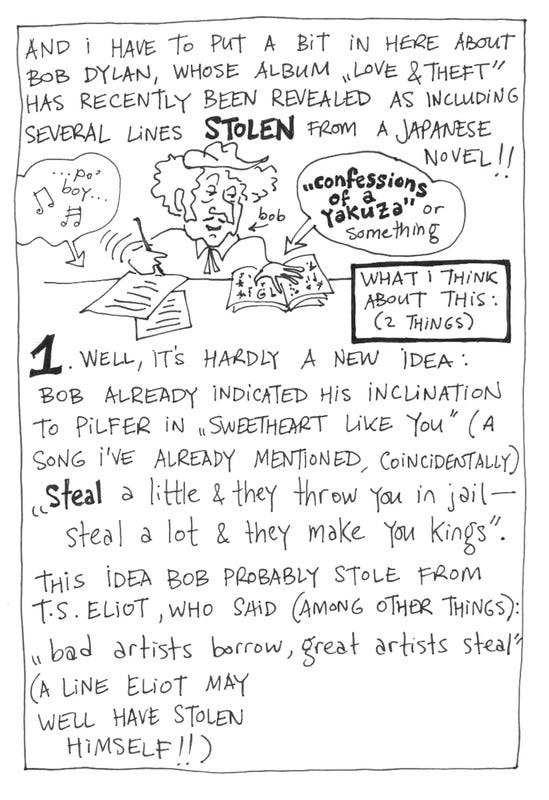 AND i HAVE TO PUT A BIT IN HERE ABOUT
BOB DYLAN, WHOSE ALBUM „LOVE & THEFT"
HAS RECENTLY BEEN REVEALED AS INCLUDING
SEVERAL LINES STOLEN FROM A JAPANESE
NOVEL!!
...po'
boy...
bob
„confessions
of a
Yakuza" or
something
WHAT I THINK
ABOUT THIS:
(2 THINGS)
1. WELL, IT'S HARDLY A NEW IDEA:
BOB ALREADY INDICATED HIS INCLINATION
TO PILFER IN „SWEETHEART LIKE YOU" (A
SONG I'VE ALREADY MENTIONED, COINCIDENTALLY)
„Steal a little & they throw you in jail—
steal a lot & they make you kings".
THIS IDEA BOB PROBABLY STOLE FROM
T.S. ELIOT, WHO SAID (AMONG OTHER THINGS):
„bad artists borrow, great artists steal"
(A LINE ELIOT MAY
WELL HAVE STOLEN
HIMSELF!!)